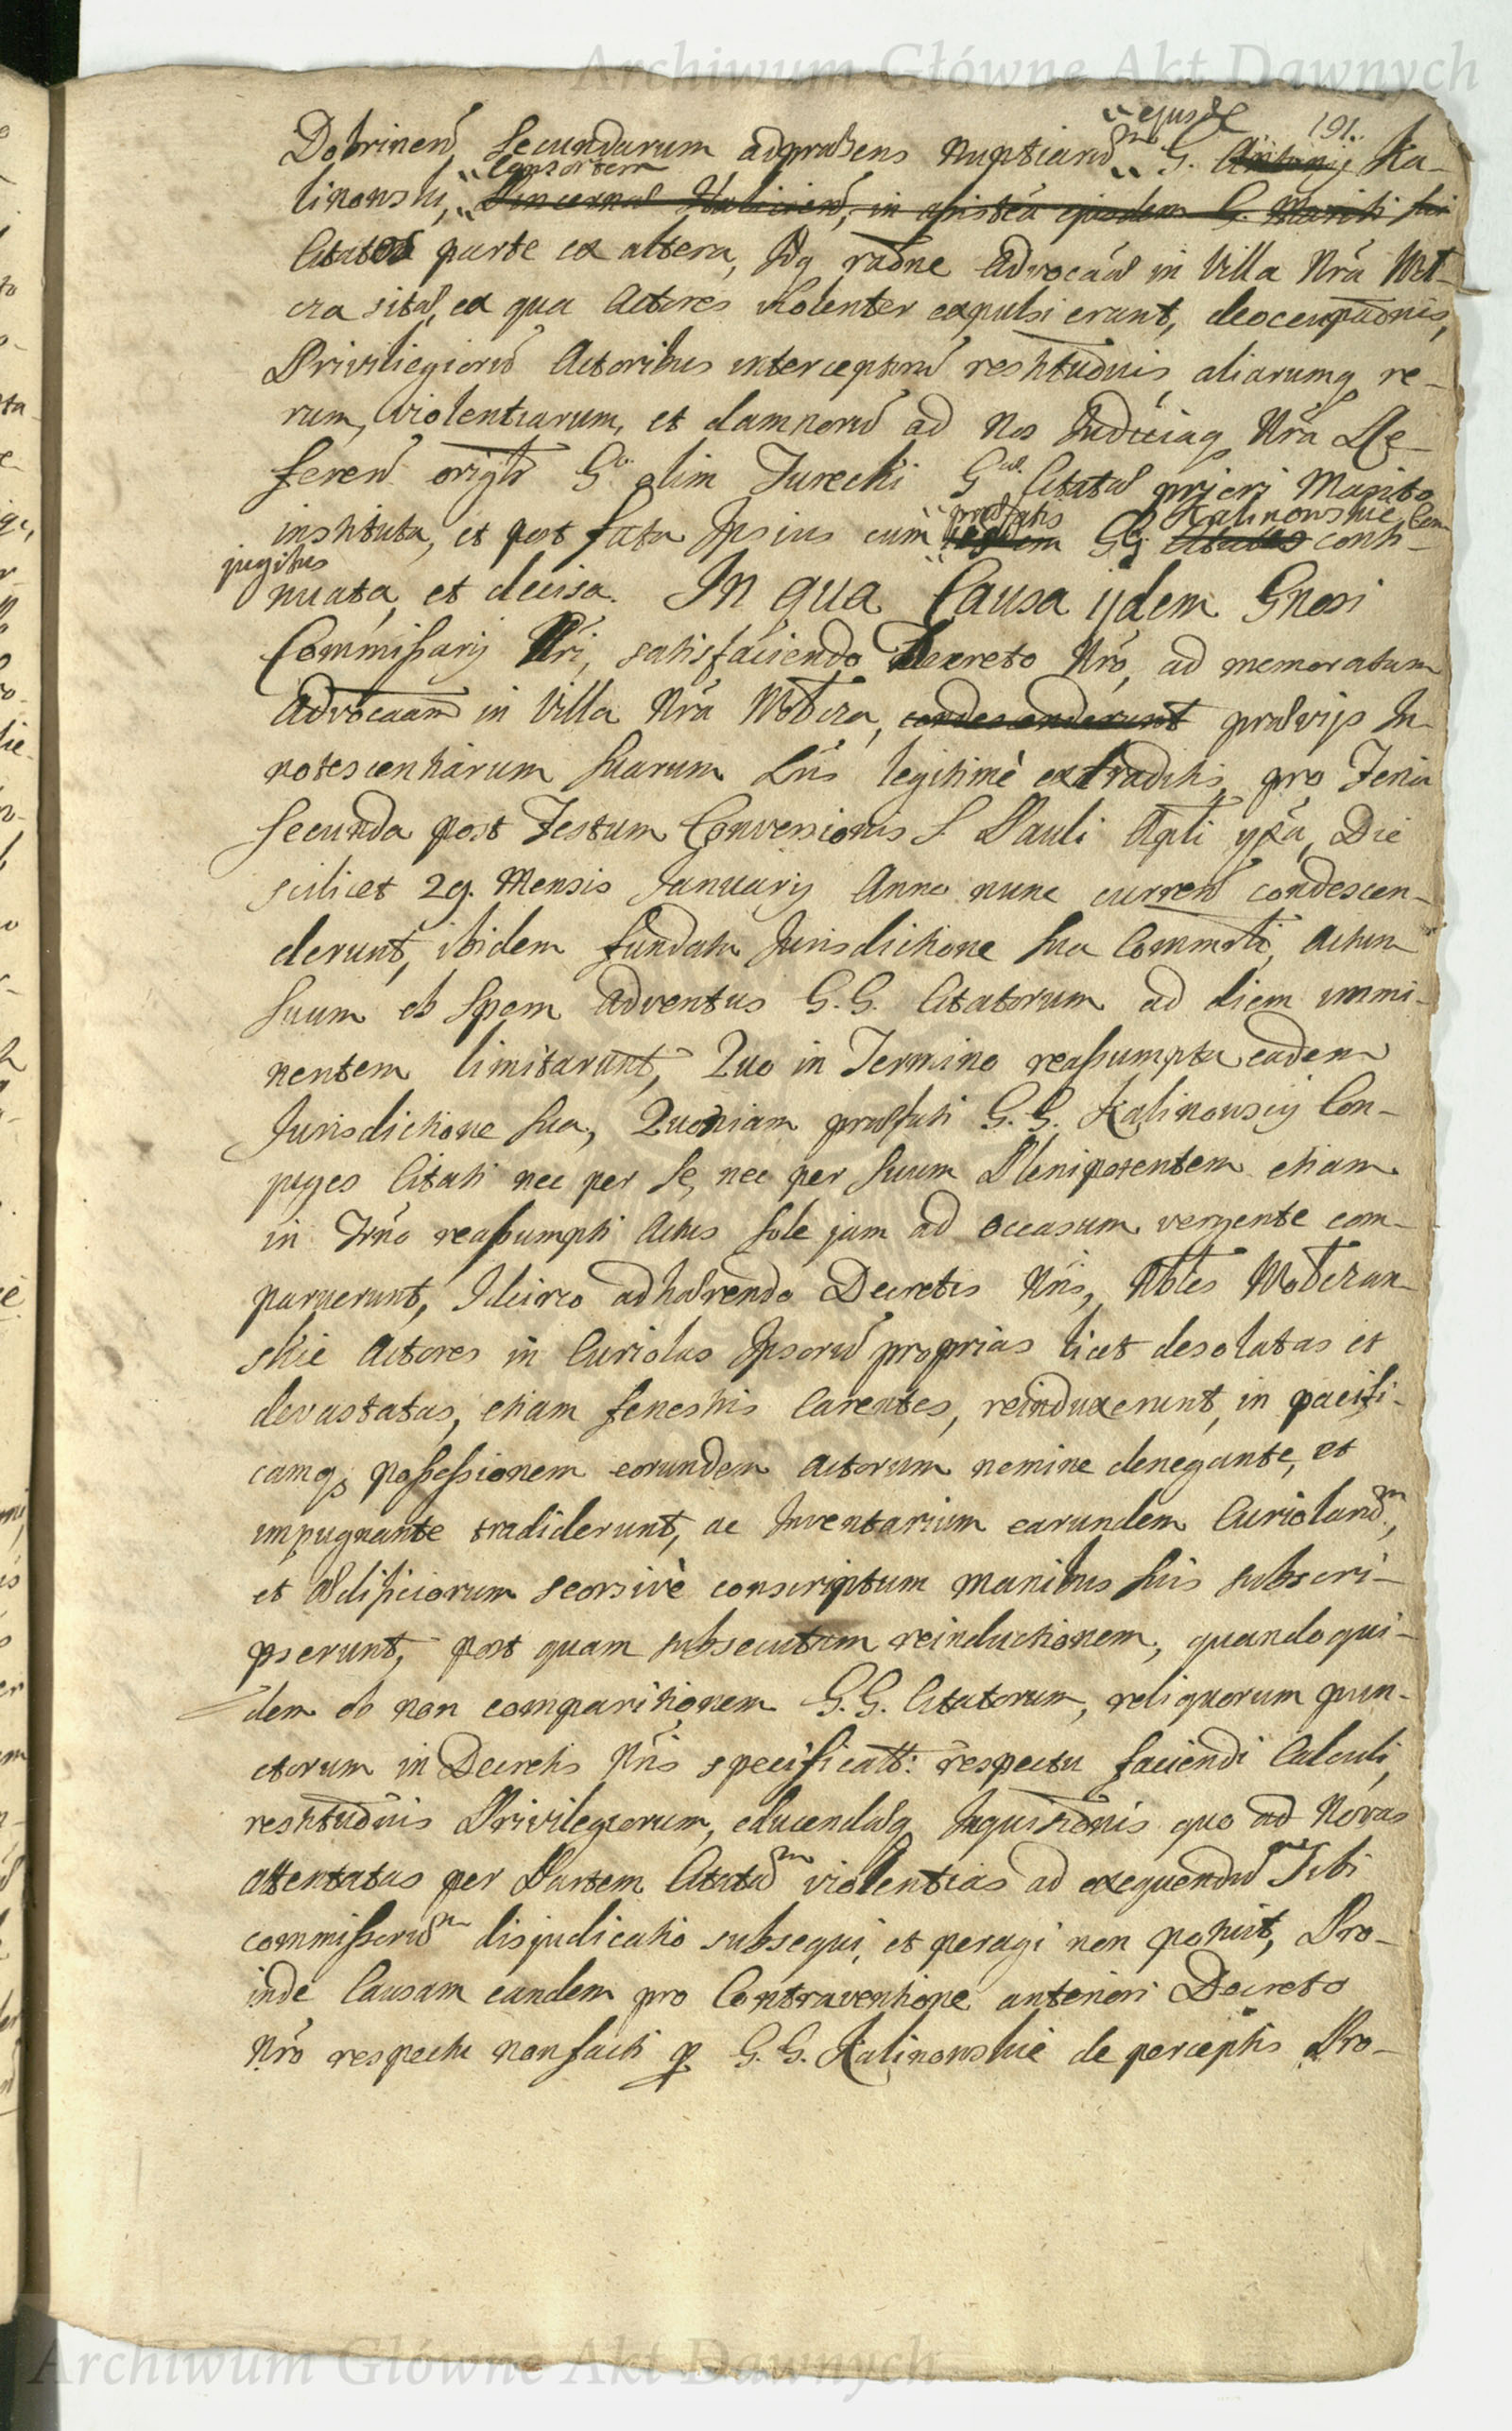 Archiwum Główne Akt Dawnych
191.
ejusd
Dobrinen Secundarum adpraesens Nuptiarum G. Antonij Ka-
Consortem
linowski, Pincernae Halicien, in assistentia ejusdem G. Mariti sui
Citatos parte ex altera, Idq radne Advocaae in Villa Nra Wol-
cza sitae, ex qua Actores violenter expulsi erant, deoccupaonis,
Priviliegiorum Actoribus interceptorum restituonis, aliarumq re-
rum, violentiarum, et damnorum ad Nos Judiciaq Nra Re-
feren origlr G. olim Turecki G. Citatae priori Marito
praefatis Kalinowskie Con
instituta, et post fata Ipsius cum iisdem GG Citatis conti-
jugibus
nuata, et decisa. In qua Causa ijdem Gnosi
Commissarij Nri, satisfaciendo Decreto Nro, ad memoratam
Advocaam in Villa Nra Wolcza, condescenderunt praevijs In-
notescentiarum suarum Lris legitimè extraditis, pro Feria
Secunda post Festum Conversionis S. Pauli Apli ypa, Die
scilicet 29. Mensis Januarij Anno nunc curren condescen-
derunt, ibidem fundata Jurisdictione sua Commrli, actum
suum ob spem adventus G.G. Citatorum ad diem immi-
nentem limitarunt, Quo in Termino reassumpta eadem
Jurisdictione sua, Quoniam praefati G.G. Kalinowscy Con-
juges Citati nec per se, nec per suum Plenipotentem etiam
in Trno reassumpti Actus sole jam ad occasum vergente com-
paruerunt, Idcirco adhaerendo Decretis Nris, Nbles Wolczan-
skie Actores in Curiolas Ipsorum proprias licet desolatas et
devastatas, etiam fenestris Carentes, reinduxerunt, in pacifi-
camq possessionem eorundem Actorum nemine denegante, et
impugnante tradiderunt, ac Inventarium earundem Curiolarum,
et aedificiorum seorsivè conscriptum manibus suis subscri-
pserunt, post quam subsecutam reinductionem, quandoqui-
dem ob non comparitionem G.G. Citatorum, reliquorum pun-
ctorum in Decretis Nris specificatt: respectu faciendi Calculi,
restituonis Privilegiorum, educendaeq Inquisionis quo ad Novas
attentatas per Partem Citatam violentias ad exequendum Sibi
commissorum disjudicatio subsequi, et peragi non potuit, Pro-
inde Causam eandem pro Contraventione anteriori Decreto
Nro respectu nonfacti p G.G. Kalinowskie de perceptis Pro-
Archiwum Główne Akt Dawnych